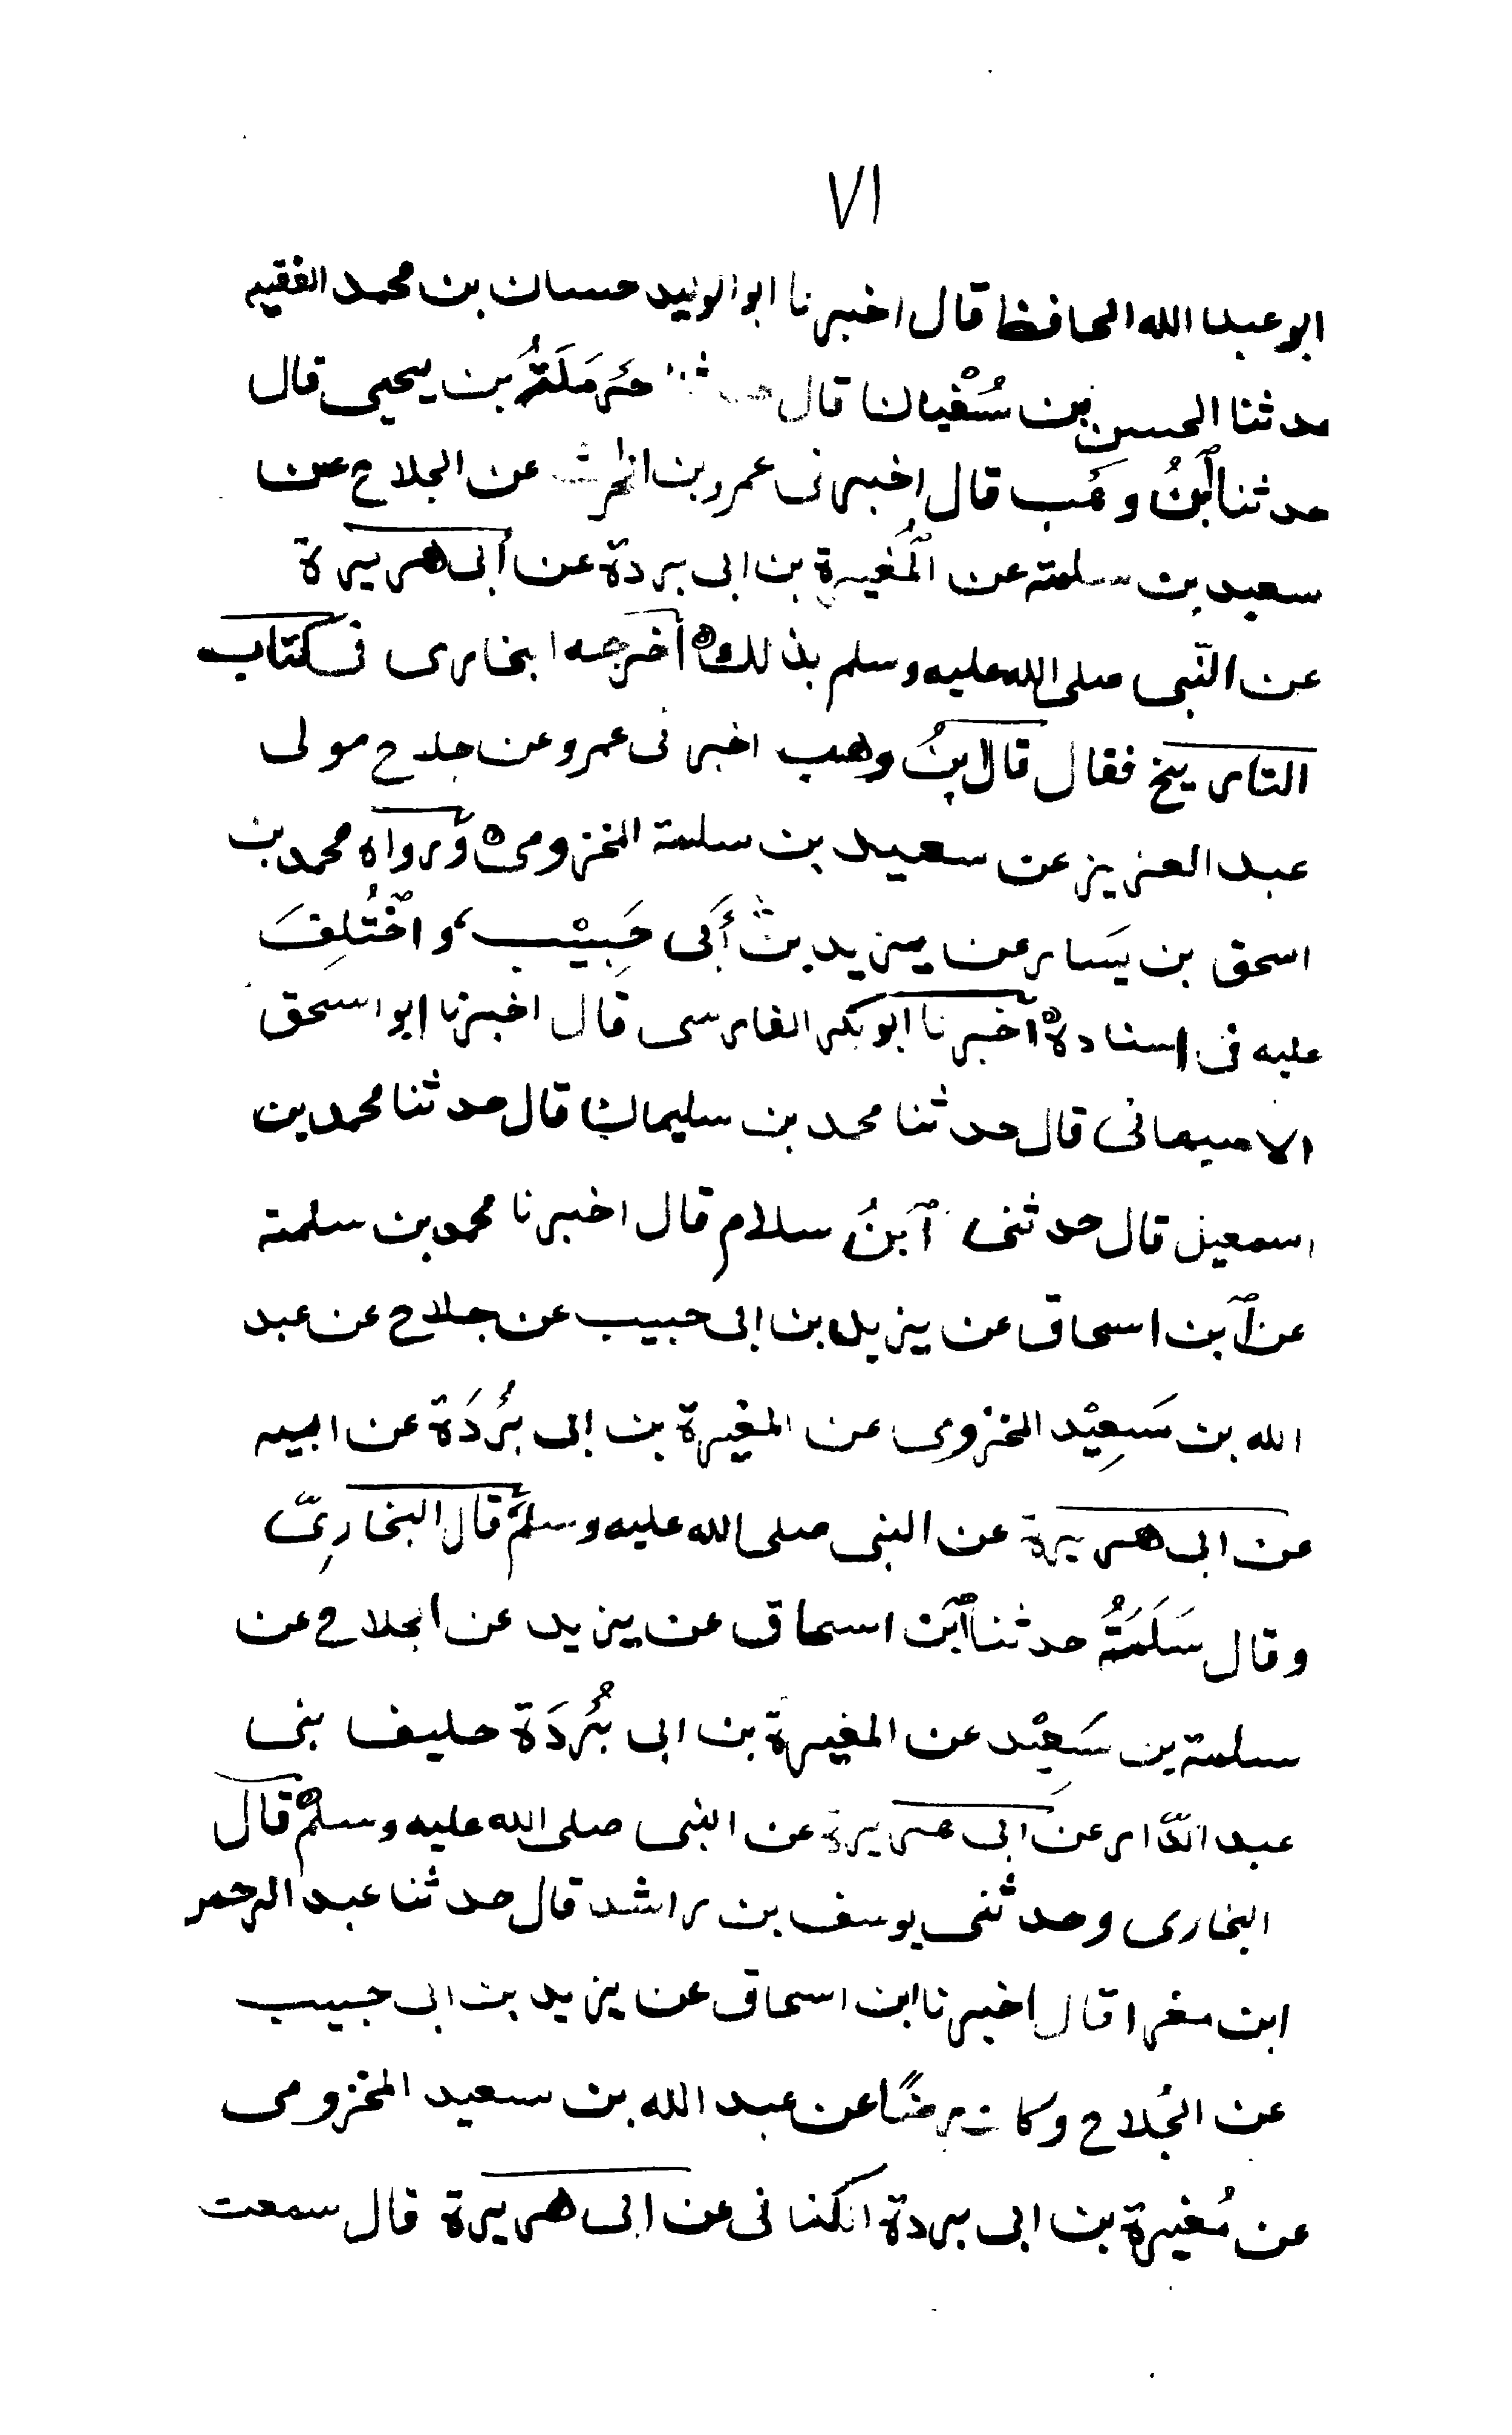 ٧١
ابو عبد الله الحافظ قال اخبرنا ابو الوليد حسان بن محمد الفقيه
حدثنا الحسن بن سُفْيان قال حدثنا حَرمَلَةُ بن يحيى قال
حدثنا ٱبنُ وهب قال اخبرنى عمرو بن الحرث عن الجلاح عن
سعيد بن سلمة عن المُغيرة بن ابى بردة عن أبى هريرة
عن النّبى صلى الله عليه وسلم بذلك ه أخرجه البخارى فى كتاب
التاريخ فقال قال ابنُ وهب اخبرنى عمرو عن جلاح مولى
عبد العزيز عن سعيد بن سلمة المخزومى ه ورواه محمد بن
اسحق بن يَسار عن يزيد بن أَبى حَبِيْب، وٱخْتُلِفَ
عليه فى اسناده ه أخبرنا ابو بكر الفارسى قال اخبرنا ابو اسحق
الاصبهانى قال حدثنا محمد بن سليمان قال حدثنا محمد بن
اسمعيل قال حدثنى ٱبنُ سلام قال اخبرنا محمد بن سلمة
عن ٱبن اسحاق عن يزيد بن ابى حبيب عن جلاح عن عبد
الله بن سَعِيْد المخزومى عن المغيرة بن ابى بُرْدَة عن ابيه
عن ابى هريرة عن النبى صلى الله عليه وسلم ه قال البخارِىّ
وقال سَلَمَةُ حدثنا ٱبن اسحاق عن يزيد عن الجلاح عن
سلمة بن سَعِيْد عن المغيرة بن ابى بُرْدَة حليف بنى
عبد الدّار عن ابى هريرة عن النبى صلى الله عليه وسلم ه قال
البخارى وحدثنى يوسف بن راشد قال حدثنا عبد الرحمن
ابن مغرا قال اخبرنا ابن اسحاق عن يزيد بن ابى حبيب
عن الجُلاح وكان رضًا عن عبد الله بن سعيد المخزومى
عن مُغيرة بن ابى بردة الكنانى عن ابى هريرة قال سمعت